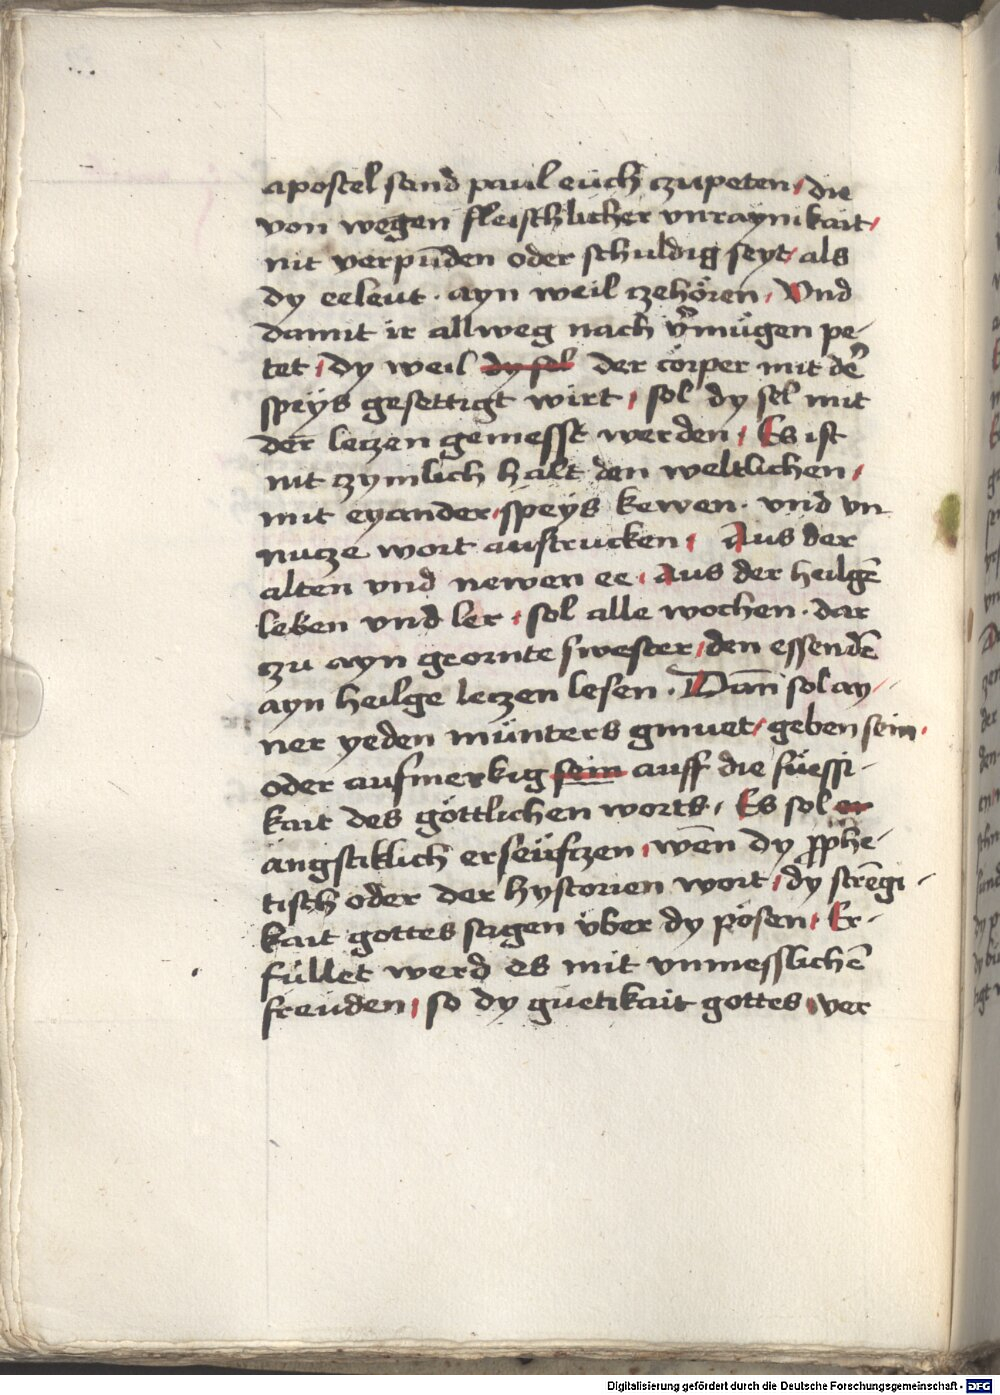 apostel sand paul eüch czupeten, die
von wegen fleischlicher vnraynikait,
nit verpūden oder schuldig seyt, als
dy eeleut. ayn weil czehören, Vnd
damit ir allweg nach v̄mügen pe-
tet, dy weil dy sel der cörper mit dē
speys gesettigt wirt, sol dy sel mit
der leczen gemesst werden, Es ist
nit zymlich halt den weltlichen,
mit eyander, speys kewen. vnd vn
nucze wort austrucken, Aus der
alten vnd newen ee, Aus der heilgē
leben vnd ler, sol alle wochen. dar
zu ayn geornte swester, den essendē
ayn heilge leczen lesen. Dan̄ sol ay-
ner yeden münters gmuet, geben sein.
oder aufmerkig sein auff die süessi-
kait des göttlichen worts, Es sol er
ängstiklich erseüfczen, wēn dy p̄phe-
tisch oder der hystorien wort, dy strēgi-
kait gottes sagen über dy pösen, Er-
füllet werd es mit vnmesslichē
freüden, so dy guetikait gottes, ver
Digitalisierung gefördert durch die Deutsche Forschungsgemeinschaft - DFG